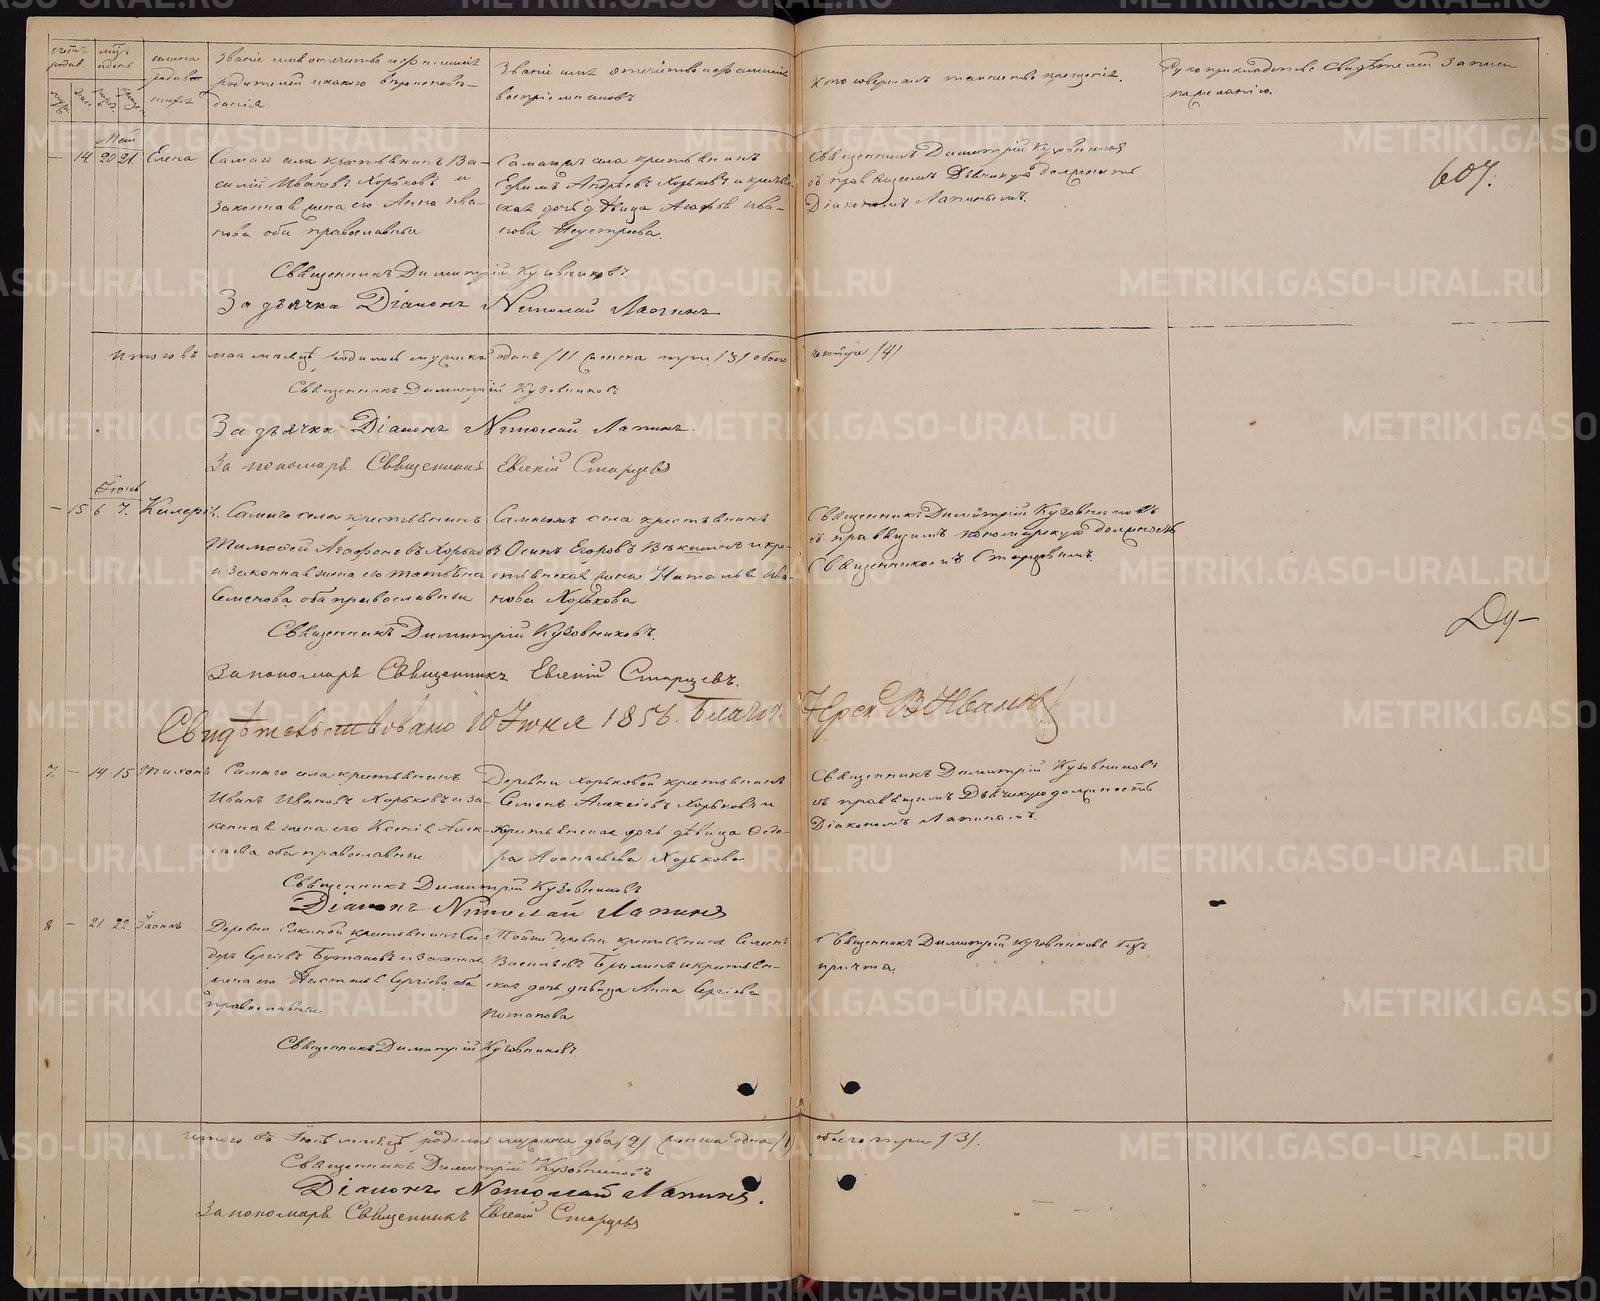 счетъ родив.
мѣс. и день
имена родив-шихся
Званіе имя отечество и фамилія
родителей и какого вѣроиспове-
данія
Званіе имя отечество и фамилія
воспріемниковъ
Кто совершалъ таинство крещенія.
Рукоприкладство свидѣтелей записи
по желанію.
Май
— 14 20 21 Елена
Самаго села крестьянинъ Ва-
силій Ивановъ Хорьковъ и
законная жена его Анна Ива-
нова оба православные
Самагожъ села крестьянинъ
Ефимъ Андреевъ Хорьковъ и крестьян-
ская дочь девица Агафья Ива-
нова
Священникъ Димитрій Кузовниковъ
съ правящимъ Дьячкую должность
Діакономъ Лапинымъ.
607.
Священникъ Димитрій Кузовниковъ.
За дьячка Діаконъ Николай Лапинъ
Итого въ маѣ мѣсяцѣ родилось мужска одинъ /1/ женска три /3/ обоего четыре /4/
Священникъ Димитрій Кузовниковъ
За дьячка Діаконъ Николай Лапинъ.
За пономаря Священникъ Евгеній Старцевъ
Іюнь
— 15 6 7. Калерія.
Самаго села крестьянинъ
Тимофей Агафоновъ Хорьковъ
и законная жена его Татьяна
Семенова оба православные
Самагожъ села крестьянинъ
Осипъ Егоровъ и кре-
стьянская жена Наталья Ива-
нова Хорькова
Священникъ Димитрій Кузовниковъ
съ правящимъ пономарскую должность
Священникомъ Старцевымъ.
Ду-
Священникъ Димитрій Кузовниковъ.
За пономаря Священникъ Евгеній Старцевъ.
Свидѣтельствовано 10 Іюля 1856. Благоч. Іерей В Ивановъ
7. — 14 15 Тихонъ
Самаго села крестьянинъ
Иванъ Ивановъ Хорьковъ и за-
конная жена его Ксенія Алек-
сѣева оба православные
Деревни Хорьковой крестьянинъ
Семенъ Алексіевъ Хорьковъ и
крестьянская дочь дѣвица Ѳедо-
ра Аѳанасьева Хорькова
Священникъ Димитрій Кузовниковъ
съ правящимъ Дьячкую должность
Діакономъ Лапинымъ.
Священникъ Димитрій Кузовниковъ
Діаконъ Николай Лапинъ
8 — 21 22 Іоаннъ
Деревни крестьянинъ
Сергіевъ и законная
жена его Наталья Сергіева оба
православные
Тойже деревни крестьянинъ Семенъ
Васильевъ и крестьян-
ская дочь дѣвица Анна Сергіева
Потапова
Священникъ Димитрій Кузовниковъ безъ
причта.
Священникъ Димитрій Кузовниковъ.
Итого въ Іюнѣ мѣсяцѣ родилось мужска два /2/ женска одна /1/ обоего три /3/.
Священникъ Димитрій Кузовниковъ
Діаконъ Николай Лапинъ.
За пономаря Священникъ Евгеній Старцевъ
METRIKI.GASO-URAL.RU